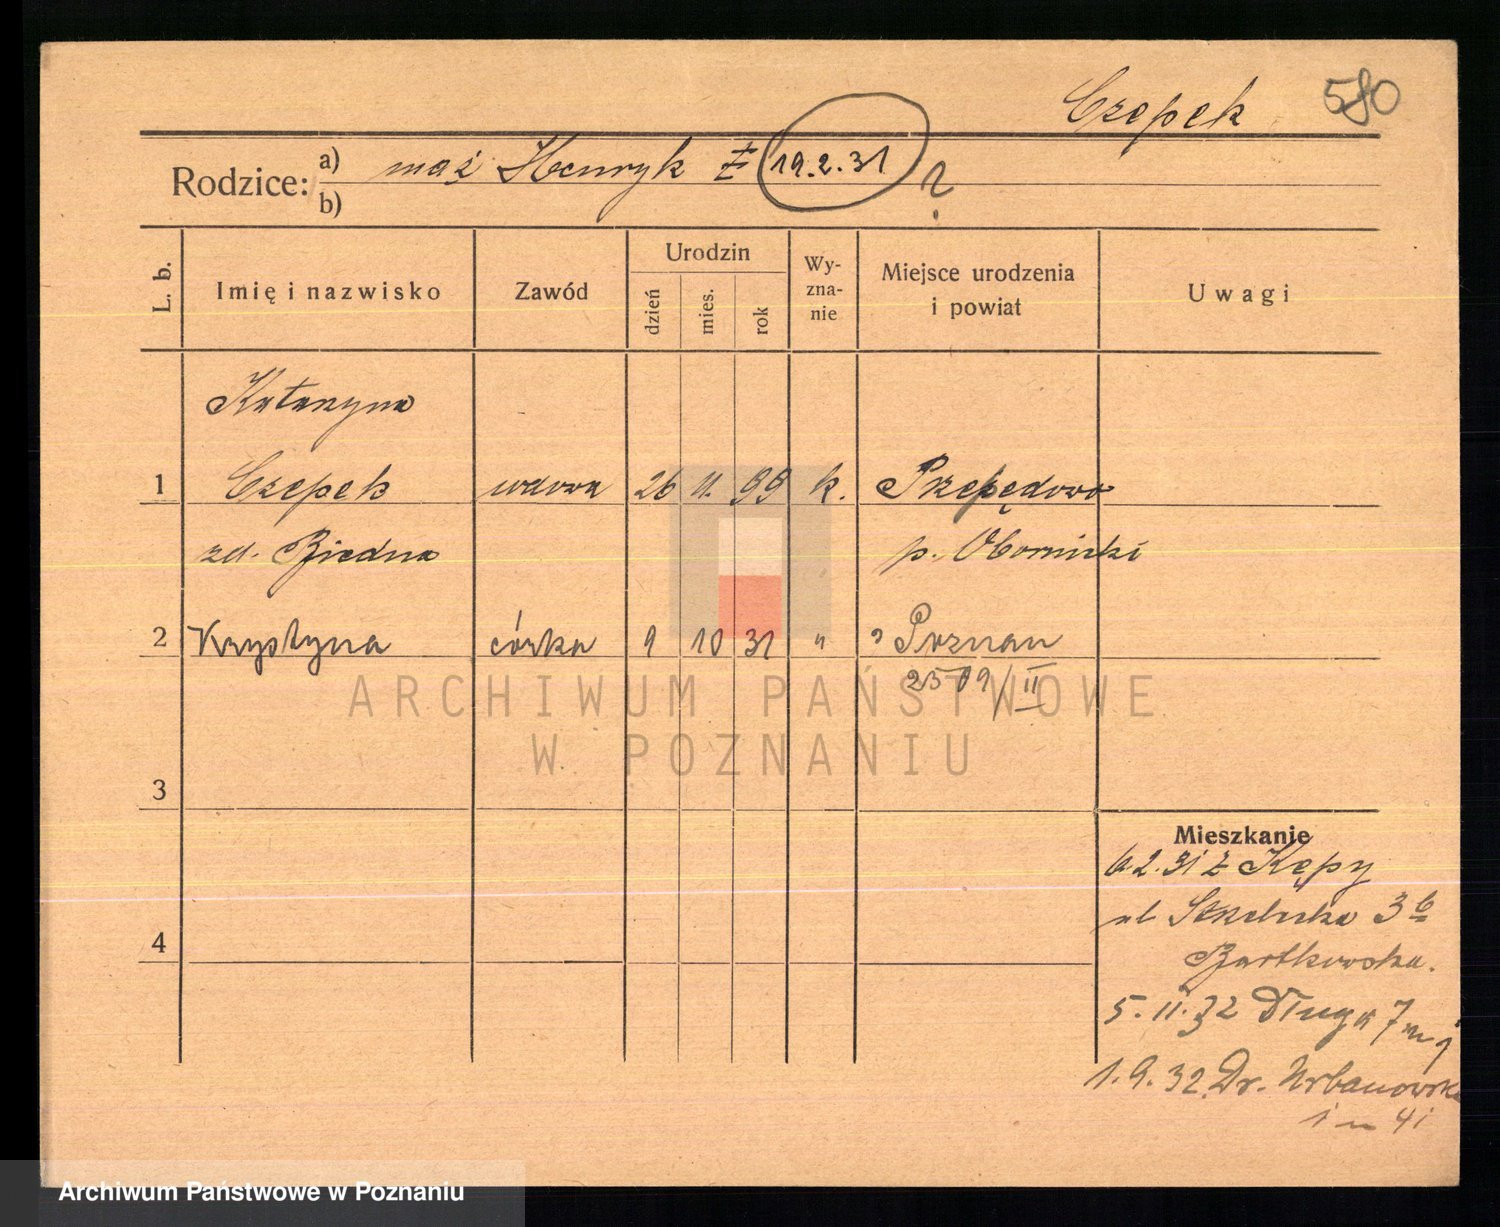 Czepek 580
Rodzice: a) mąż Henryk ‡ 19.2.31 ?
b)
L. b. Imię i nazwisko Zawód Urodzin dzień mies. rok Wy-zna-nie Miejsce urodzenia i powiat Uwagi
Katarzyna
1 Czepek wdowa 26 11. 99 k. Przepędowo
zd. Biedna p. Obornicki
2 Krystyna córka 9 10 31 " Poznan
2509/II
ARCHIWUM PAŃSTWOWE
W POZNANIU
3
Mieszkanie
6.2.31 z Kępy
ul Strzelecka 3 b
4
Bartkowska.
5.11.32 Długa 7 m
1.9.32. Dr. Urbanowska
1 m 41
Archiwum Państwowe w Poznaniu